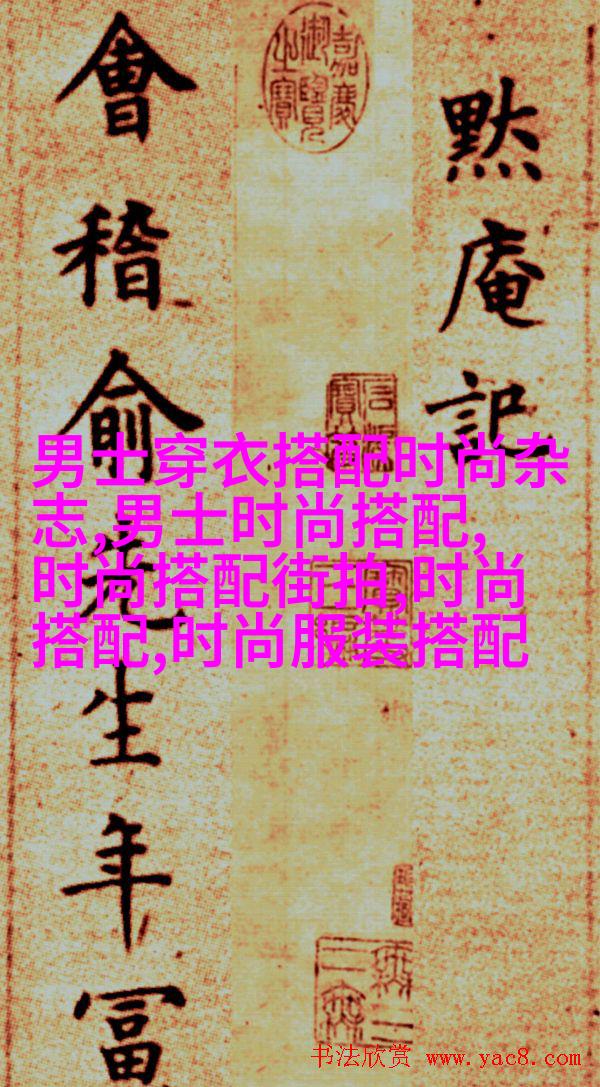 默庵記
嘉慶
御覽
之寶
會稽俞先生年冨
男士穿衣搭配时尚杂
志,男士时尚搭配,
时尚搭配街拍,时尚
搭配,时尚服装搭配
书法欣赏 www.yac8.com